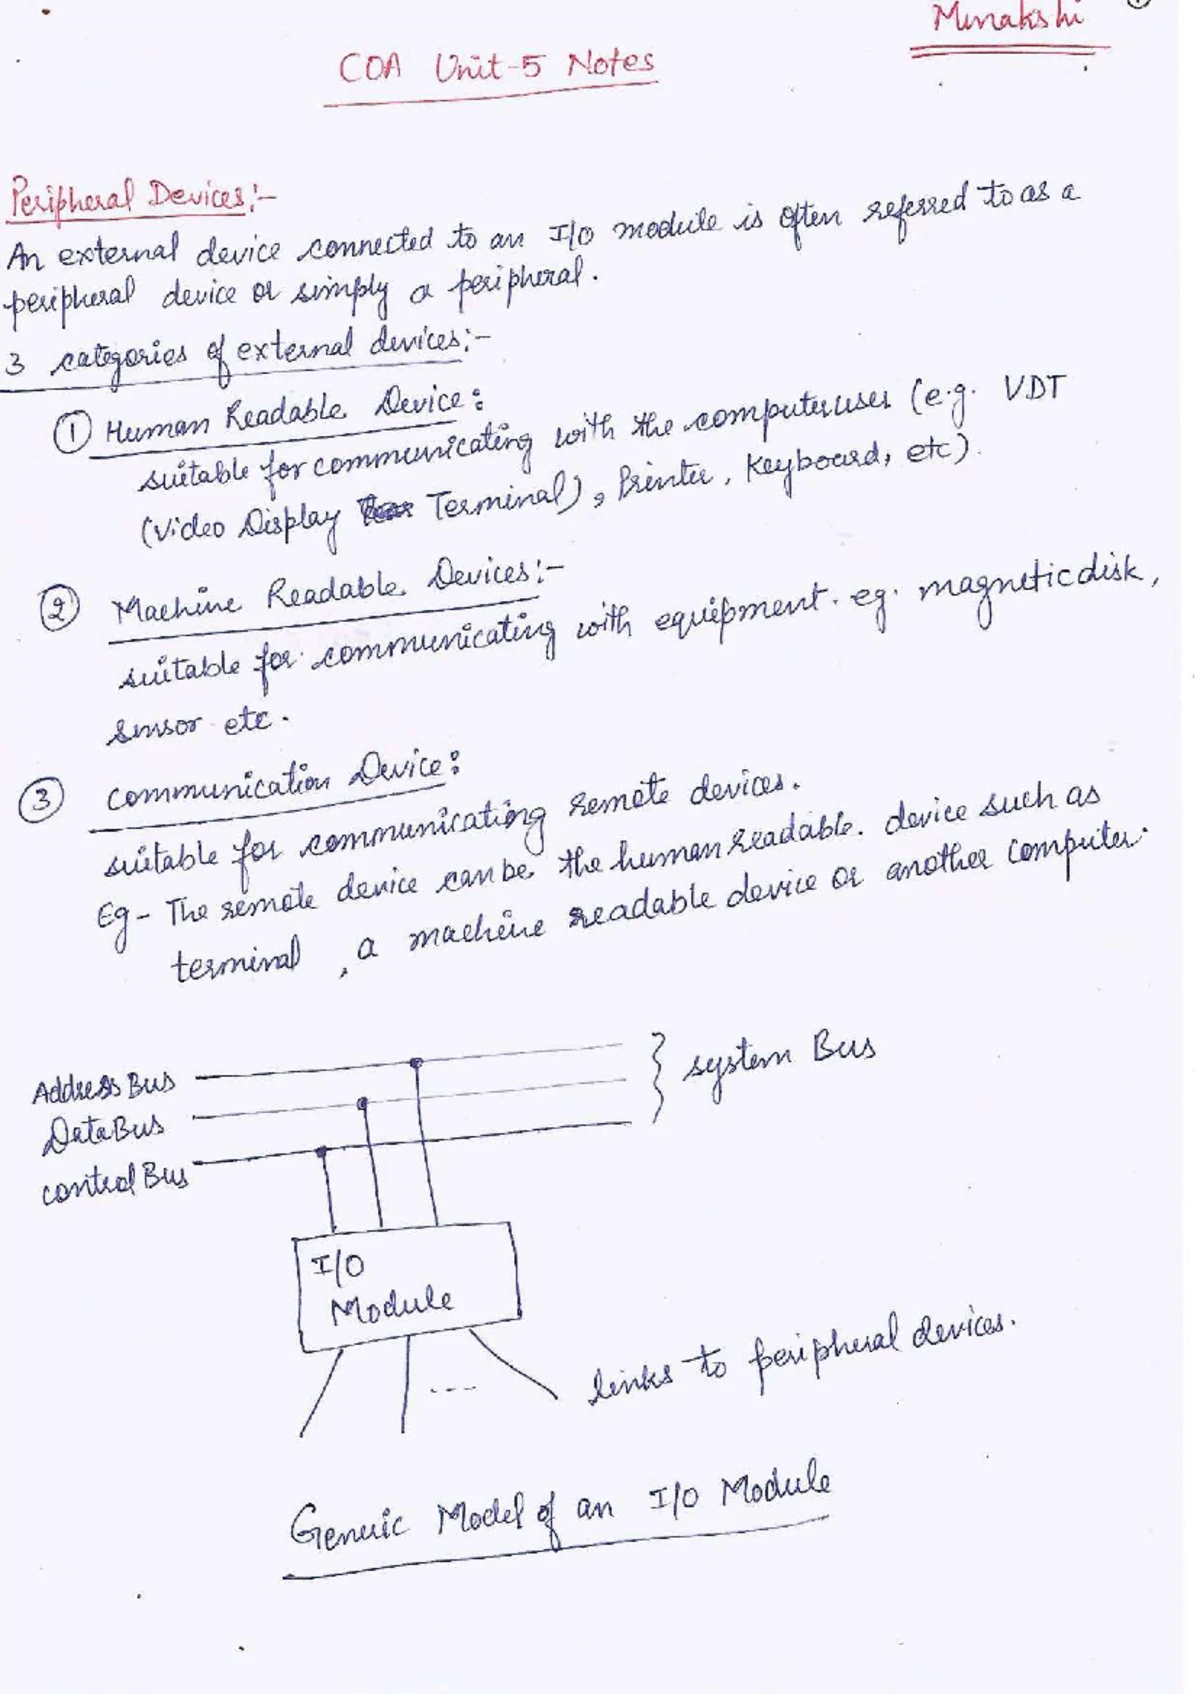 Minakshi
COA Unit-5 Notes
Peripheral Devices:-
An external device connected to an I/O module is often referred to as a
peripheral device or simply a peripheral.
3 categories of external devices:-
① Human Readable Device:
suitable for communicating with the computer user (e.g. VDT
(Video Display Terminal), Printer, Keyboard, etc).
② Machine Readable Devices:-
suitable for communicating with equipment. eg. magnetic disk,
sensor etc.
③ Communication Device:
suitable for communicating remote devices.
Eg- The remote device can be the human readable. device such as
terminal, a machine readable device or another computer.
Address Bus
Data Bus
control Bus
system Bus
I/O
Module
----
links to peripheral devices.
Generic Model of an I/O Module